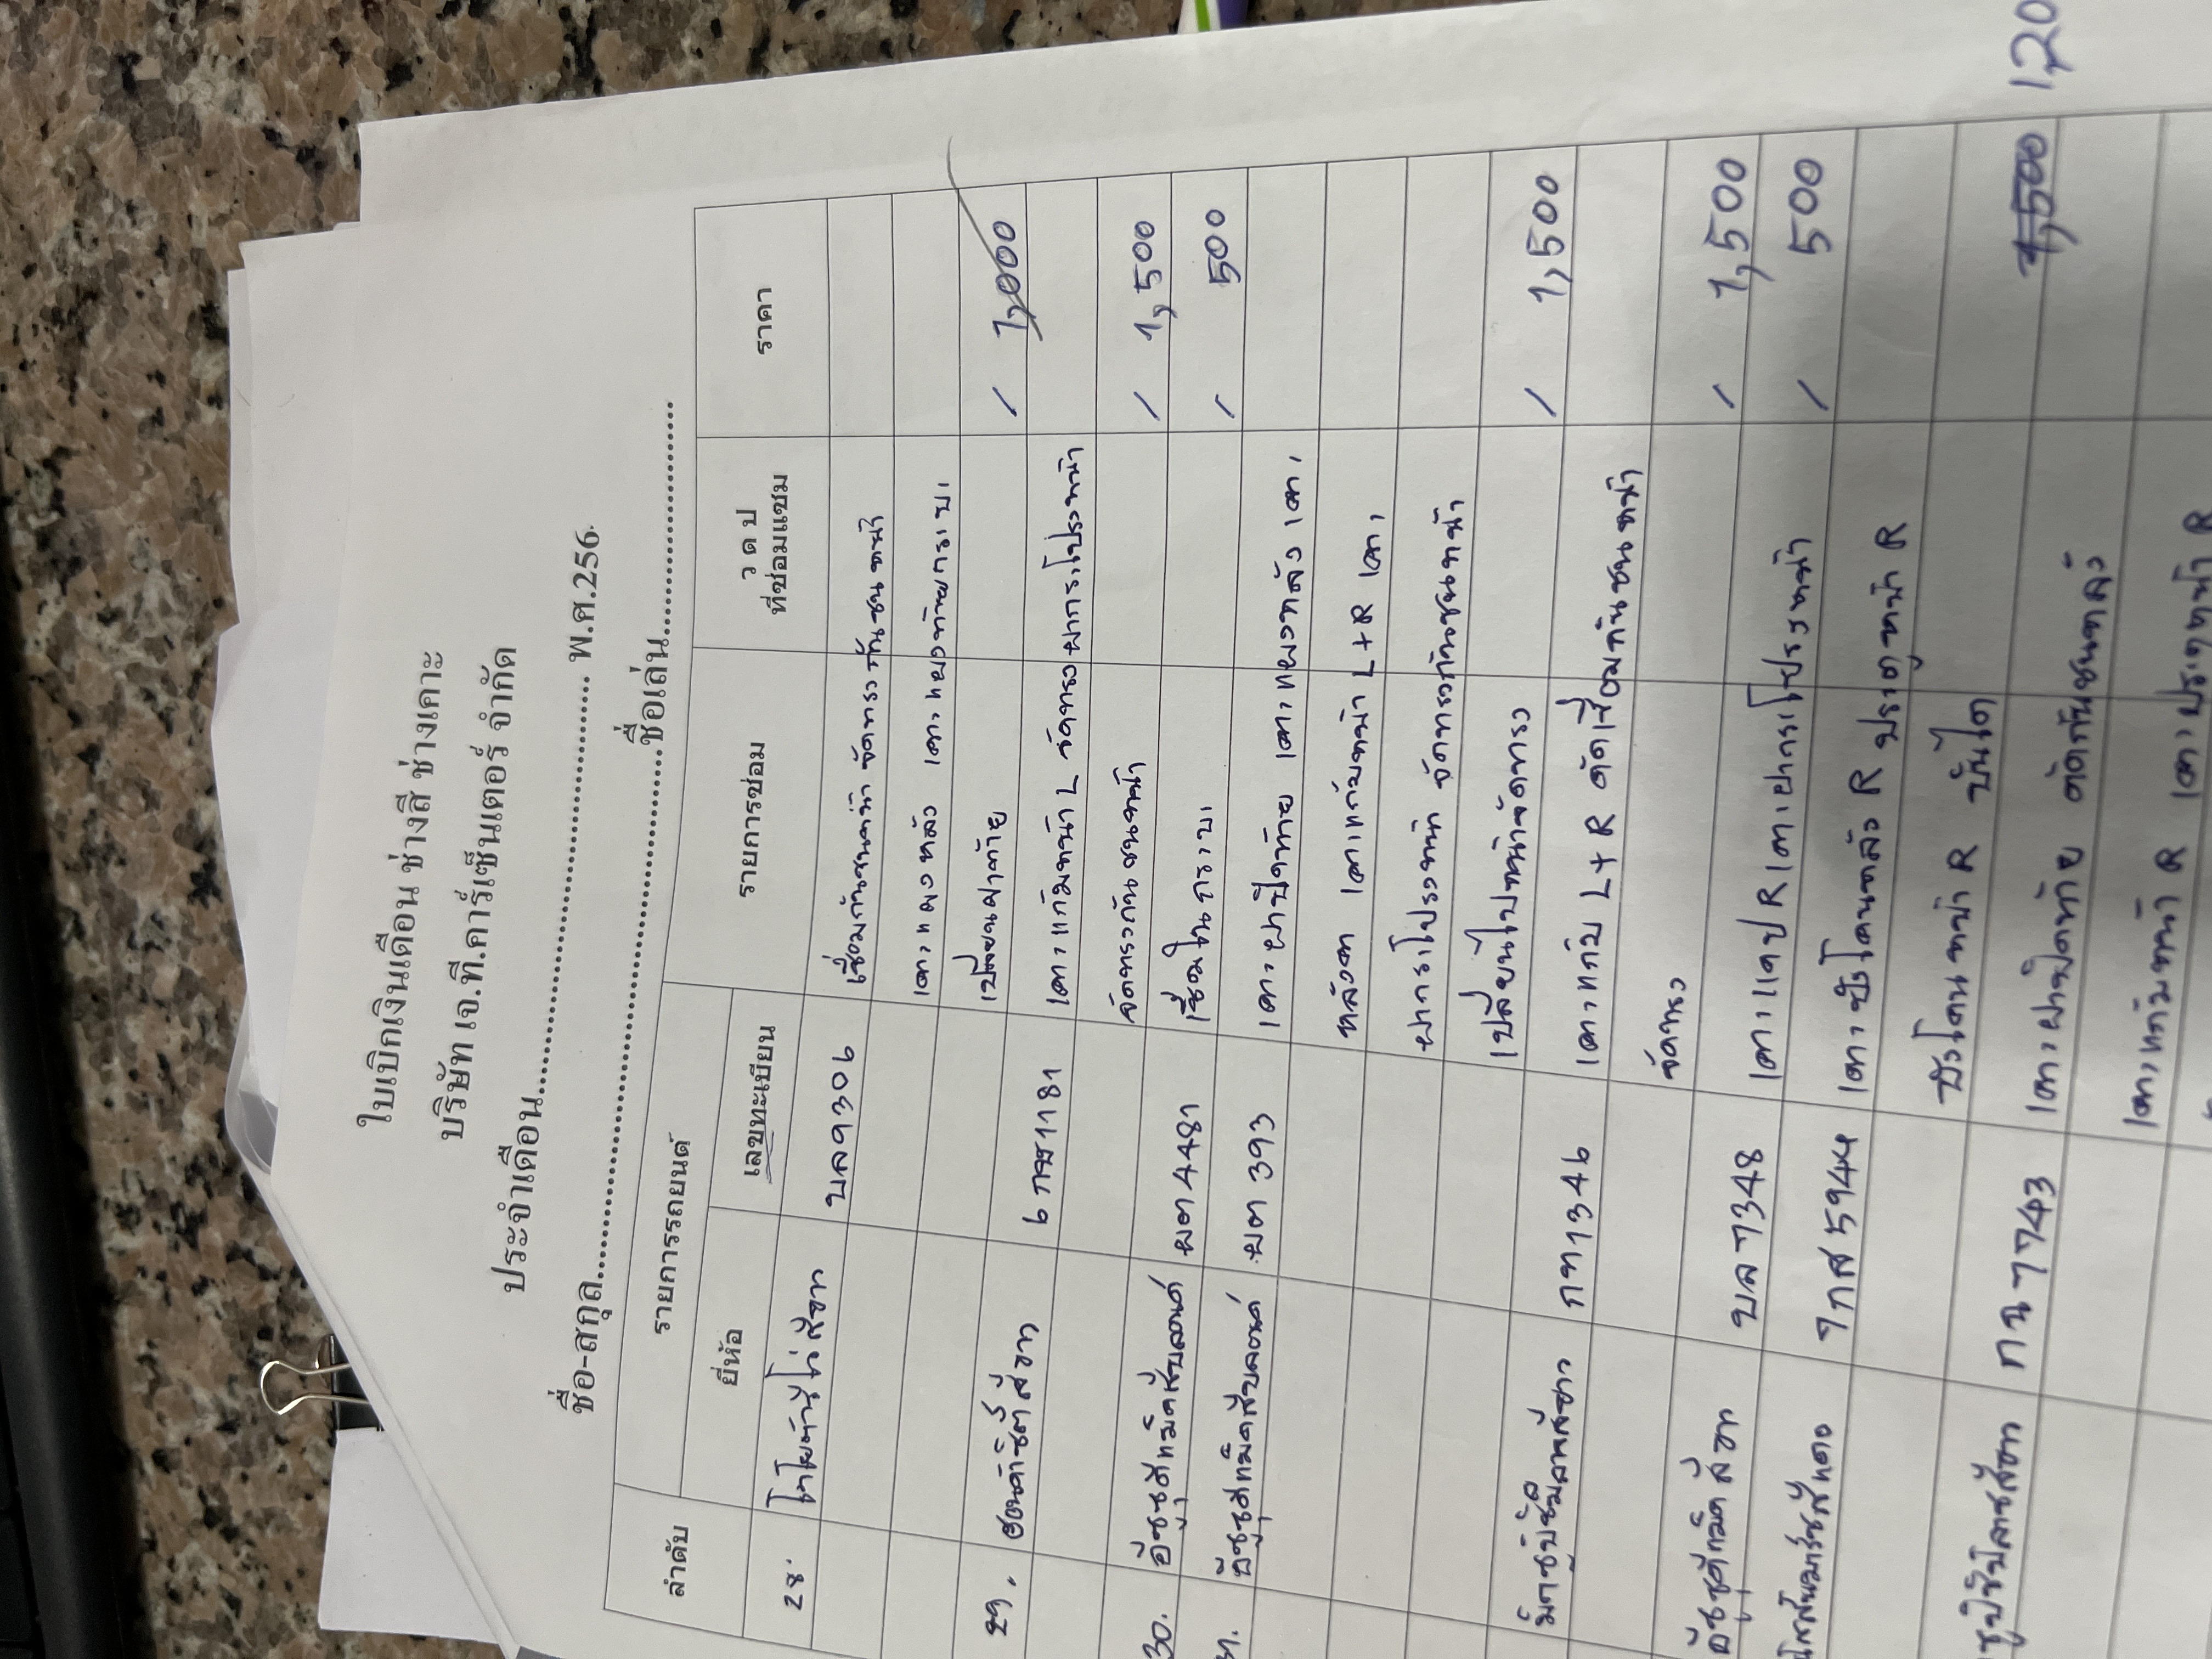 ใบเบิกเงินเดือน ช่างสี ช่างเคาะ
บริษัท เจ.ที.คาร์เซ็นเตอร์ จำกัด
ประจำเดือน.................................................. พ.ศ.256
ชื่อ-สกุล..................................................ชื่อเล่น....................
ลำดับ รายการรถยนต์ รายการซ่อม ว ด ป ที่ซ่อมแซม ราคา
ยี่ห้อ เลขทะเบียน
28. สีขาว บล 9306 เชื่อมกันชนหน้า จัดทรงกันชนหน้า
เคาะแผงหลัง
เปลี่ยนฝาท้าย / 1,000
29. ฮอนด้าซิตี้สีขาว 6 กฆ 1181 เคาะแก้มหน้า L จัดทรงฝากระโปรงหน้า
จัดทรงกันชนหน้า / 1,500
30. อีซูซุดีแม็คสีบลอนด์ ผต 4481 เชื่อมในกระบะ / 500
31. อีซูซุดีแม็คสีบลอนด์ ผต 393 เคาะฝาปิดท้าย เคาะแผงหลัง เคาะ
หลังคา เคาะแก้มหน้า L+R เคาะ
ฝากระโปรงหน้า จัดทรงกันชนหน้า
เปลี่ยนไปหน้าจัดทรง / 1,500
กท 1346 เคาะแก้ม L+R ตัดเชื่อมกันชนหน้า
จัดทรง / 1,500
อีซูซุดีแม็คสีขาว บล 7348 เคาะแคป R เคาะฝากระโปรงหน้า / 500
สีแดง 7 กส 5944 เคาะบังโคลนหลัง R ประตูหน้า R
บังโคลนหน้า R บันได 1,500 120
กน 7743 เคาะฝาปิดท้าย ตัดกันชนหลัง
เคาะแก้มหน้า R เคาะประตูหน้า R